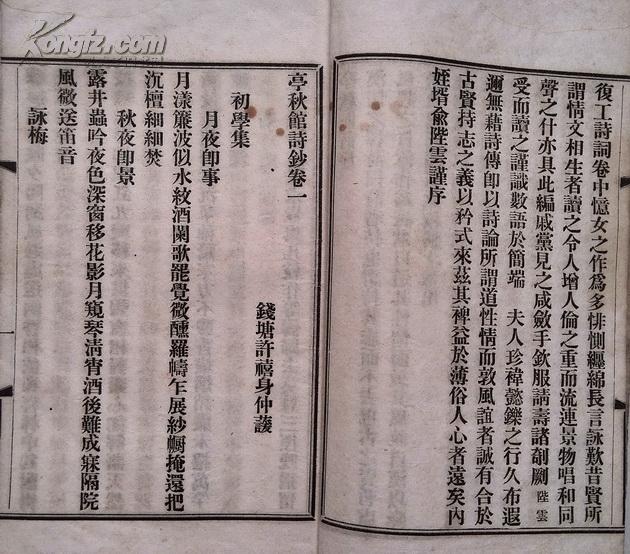 復工詩詞卷中憶女之作爲多悱惻纏綿長言詠歎昔賢所
謂情文相生者讀之令人增人倫之重而流連景物唱和同
聲之什亦具此編戚黨見之咸斂手欽服請壽諸剞劂陛雲
受而讀之謹識數語於簡端 夫人珍褘懿鑠之行久布遐
邇無藉詩傳卽以詩論所謂道性情而敦風誼者誠有合於
古賢持志之義以矜式來茲其裨益於薄俗人心者遠矣內
姪壻兪陛雲謹序
亭秋館詩鈔卷一
錢塘許禧身仲萲
初學集
月夜卽事
月漾簾波似水紋酒闌歌罷覺微醺羅幬乍展紗幮掩還把
沉檀細細焚
秋夜卽景
露井蟲吟夜色深窗移花影月窺琴淸宵酒後難成寐隔院
風微送笛音
詠梅
Kongfz.com